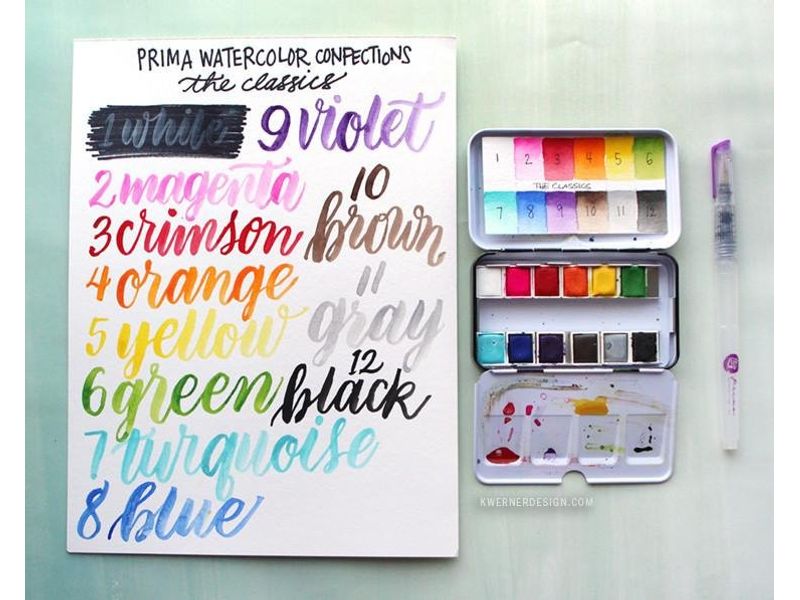 PRIMA WATERCOLOR CONFECTIONS
the classics
1 white
2 magenta
3 crimson
4 orange
5 yellow
6 green
7 turquoise
8 blue
9 violet
10
brown
11
gray
12
black
1 2 3 4 5 6
THE CLASSICS
7 8 9 10 11 12
KWERNERDESIGN.COM